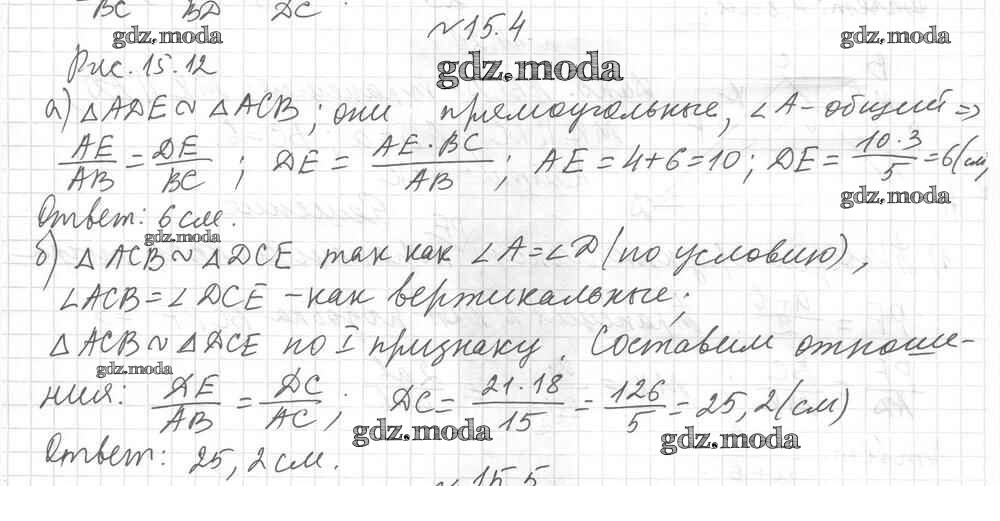 BC BD DC
№15.4
gdz.moda
gdz.moda
Рис. 15.12
gdz.moda
а) △ADE ~ △ACB; они прямоугольные, ∠A - общий =>
AE/AB = DE/BC; DE = AE·BC/AB; AE = 4+6=10; DE = 10·3/5 = 6(см)
gdz.moda
Ответ: 6см.
gdz.moda
б) △ACB ~ △DCE так как ∠A=∠D (по условию),
∠ACB = ∠DCE - как вертикальные;
△ACB ~ △DCE по I признаку. Составим отноше-
gdz.moda
ния: DE/AB = DC/AC; DC = 21·18/15 = 126/5 = 25,2(см)
gdz.moda
gdz.moda
Ответ: 25,2см.
№15.5